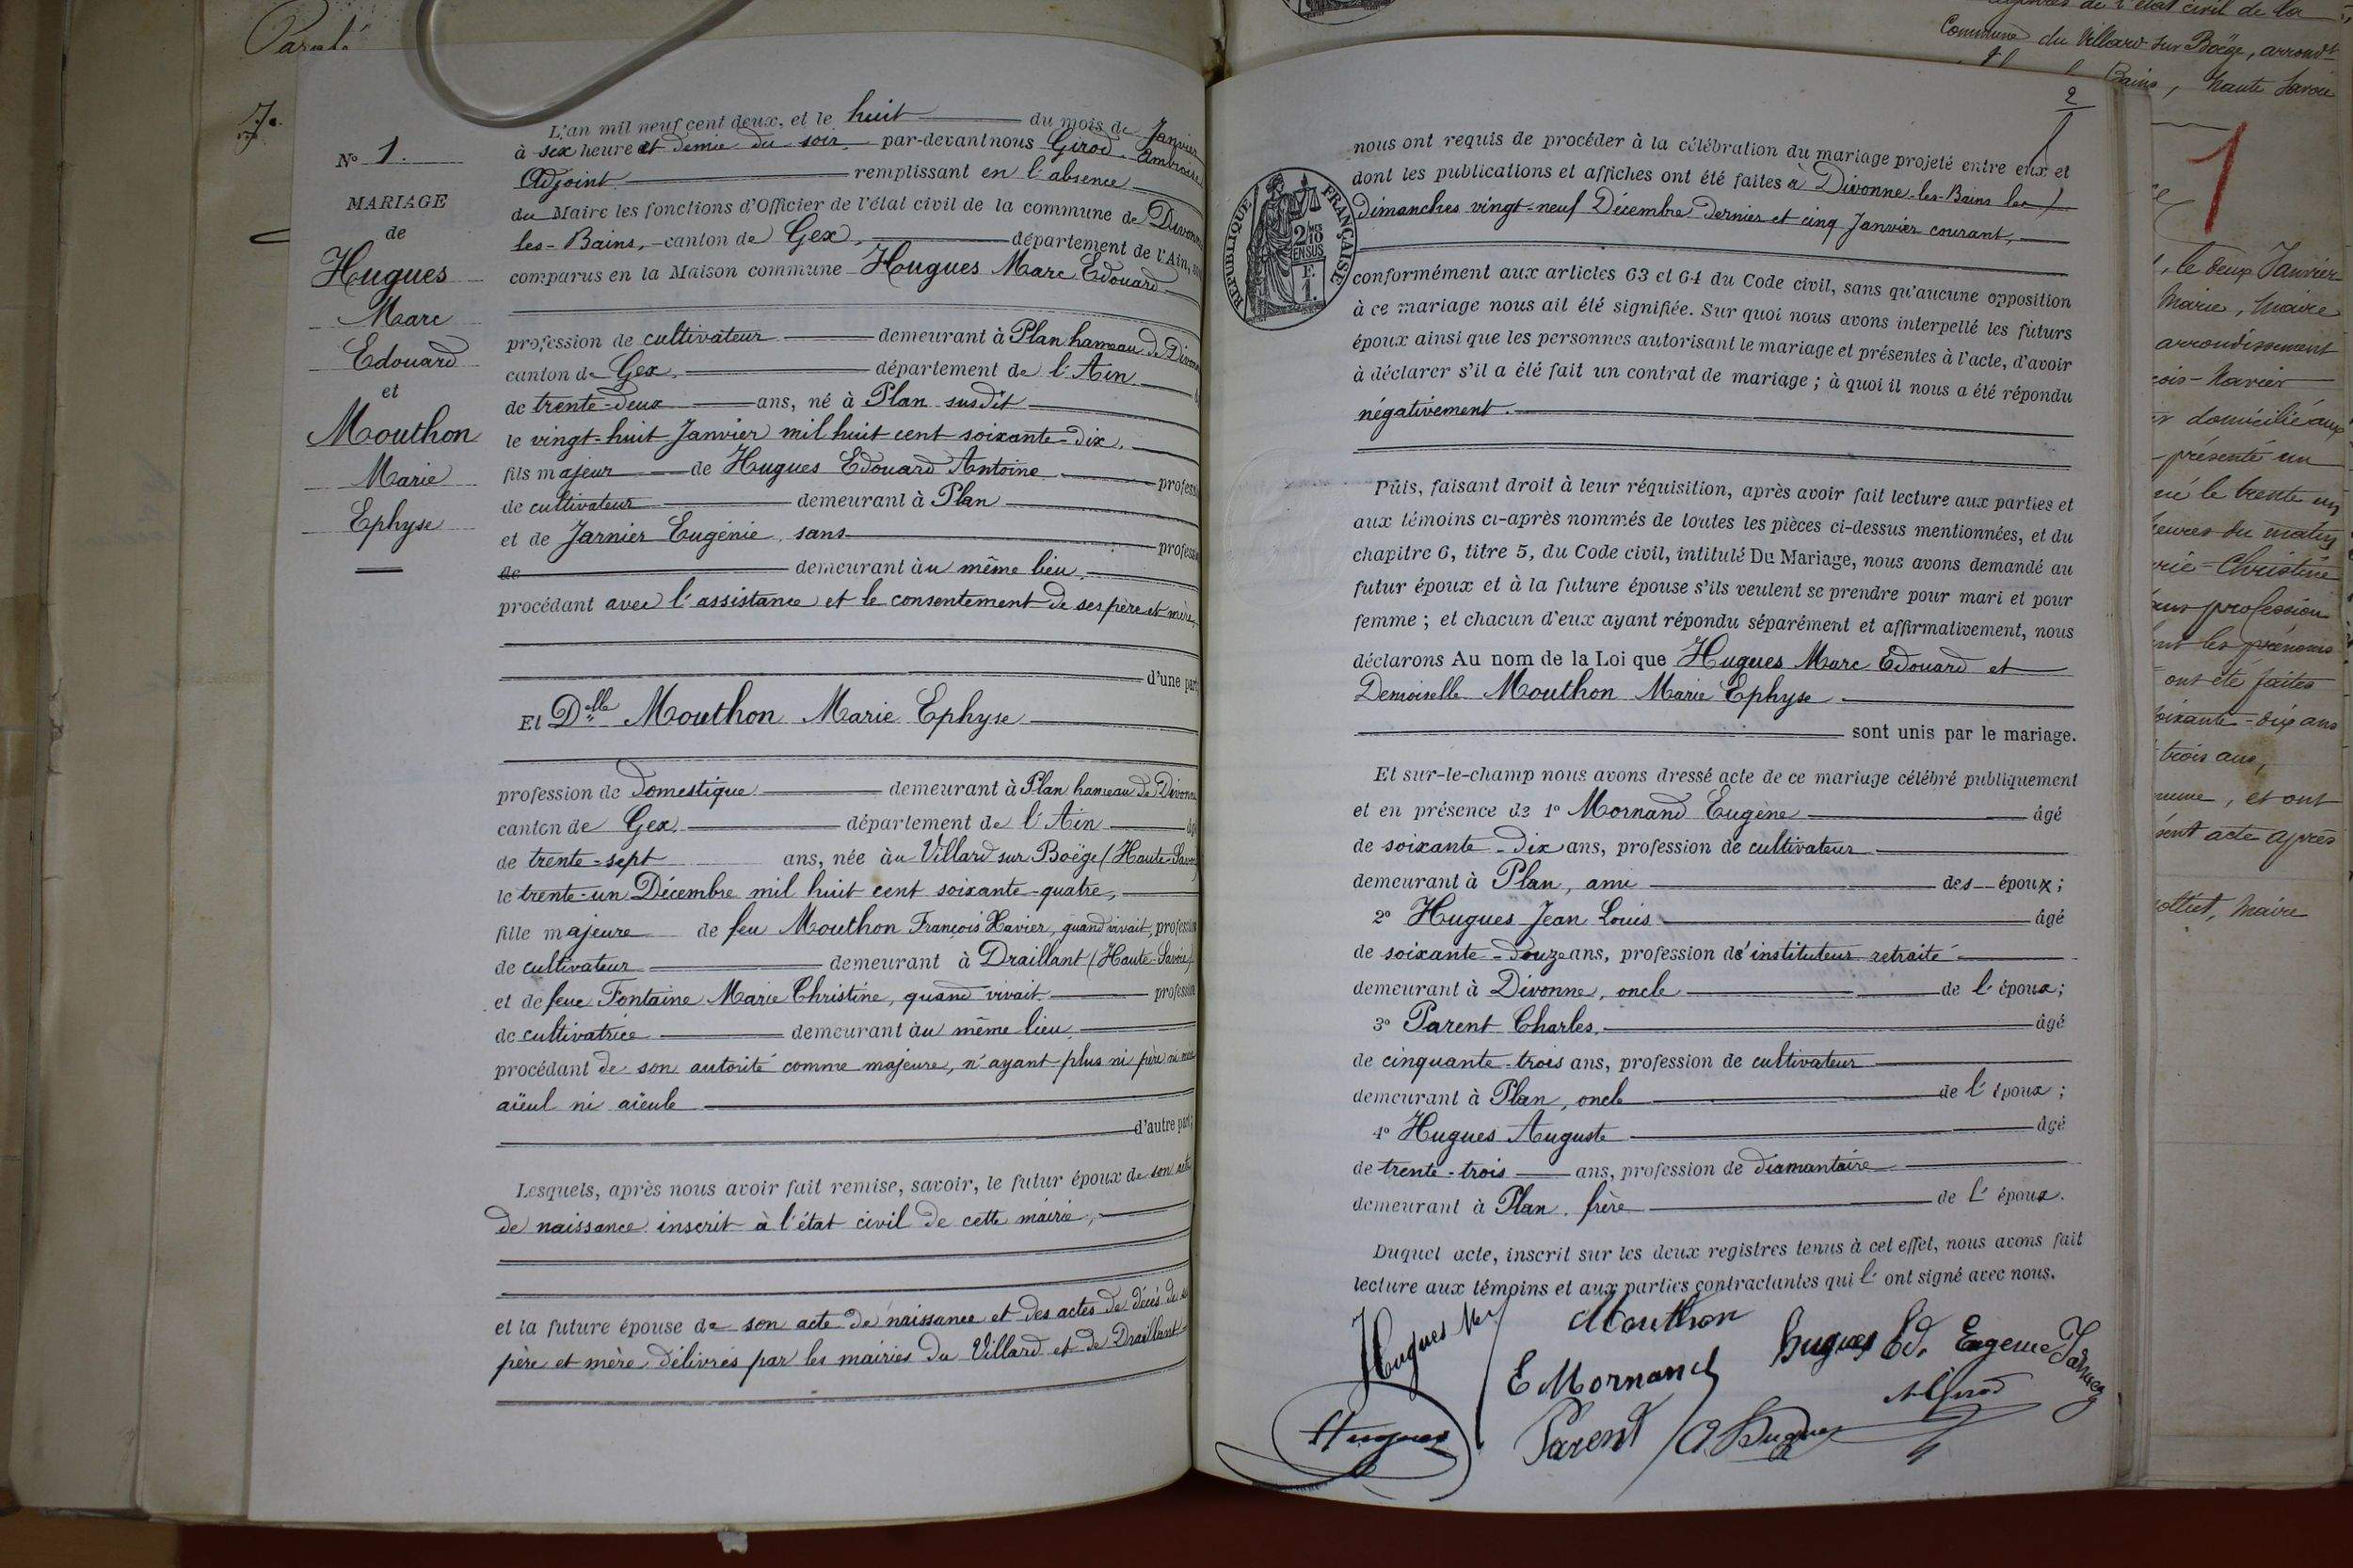 Parnt.
N° 1.
MARIAGE
de
Hugues
Marc
Edouard
et
Mouthon
Marie
Ephyse
L'an mil neuf cent deux, et le huit du mois de Janvier
à six heure et demie du soir par-devant nous Girod Ambroise
Adjoint remplissant en l'absence
du Maire les fonctions d'Officier de l'état civil de la commune de Divonne
les-Bains, canton de Gex, département de l'Ain, sont
comparus en la Maison commune Hugues Marc Edouard
profession de cultivateur demeurant à Plan hameau de Divonne
canton de Gex, département de l'Ain
de trente-deux ans, né à Plan susdit
le vingt-huit Janvier mil huit cent soixante-dix,
fils majeur de Hugues Edouard Antoine profess
de cultivateur demeurant à Plan
et de Jarnier Eugénie, sans profession
de demeurant àu même lieu,
procédant avec l'assistance et le consentement de ses père et mère,
d'une part
Et Delle Mouthon Marie Ephyse
profession de domestique demeurant à Plan hameau de Divonne
canton de Gex, département de l'Ain âg
de trente-sept ans, née àu Villard sur Boëge (Haute-Savoie)
le trente-un Décembre mil huit cent soixante-quatre,
fille majeure de feu Mouthon François Xavier, quand vivait, profession
de cultivateur demeurant à Draillant (Haute-Savoie)
et de feue Fontaine Marie Christine, quand vivait profession
de cultivatrice demeurant àu même lieu,
procédant de son autorité comme majeure, n'ayant plus ni père ni mère
aïeul ni aïeule
d'autre part;
Lesquels, après nous avoir fait remise, savoir, le futur époux de son acte
de naissance inscrit à l'état civil de cette mairie,
et la future épouse de son acte de naissance et des actes de décès de ses
père et mère délivrés par les mairies du Villard et de Draillant
2
nous ont requis de procéder à la célébration du mariage projeté entre eux et
dont les publications et affiches ont été faites à Divonne-les-Bains les
dimanches vingt-neuf Décembre dernier et cinq Janvier courant,
RÉPUBLIQUE FRANÇAISE
2/10 EN SUS
E.
1.
conformément aux articles 63 et 64 du Code civil, sans qu'aucune opposition
à ce mariage nous ait été signifiée. Sur quoi nous avons interpellé les futurs
époux ainsi que les personnes autorisant le mariage et présentes à l'acte, d'avoir
à déclarer s'il a été fait un contrat de mariage ; à quoi il nous a été répondu
négativement.
Puis, faisant droit à leur réquisition, après avoir fait lecture aux parties et
aux témoins ci-après nommés de toutes les pièces ci-dessus mentionnées, et du
chapitre 6, titre 5, du Code civil, intitulé Du Mariage, nous avons demandé au
futur époux et à la future épouse s'ils veulent se prendre pour mari et pour
femme ; et chacun d'eux ayant répondu séparément et affirmativement, nous
déclarons Au nom de la Loi que Hugues Marc Edouard et
Demoiselle Mouthon Marie Ephyse
sont unis par le mariage.
Et sur-le-champ nous avons dressé acte de ce mariage célébré publiquement
et en présence de 1° Mornand Eugène âgé
de soixante-dix ans, profession de cultivateur
demeurant à Plan, ami des époux ;
2° Hugues Jean Louis âgé
de soixante-douze ans, profession d'instituteur retraité
demeurant à Divonne, oncle de l'époux ;
3° Parent Charles, âgé
de cinquante-trois ans, profession de cultivateur
demeurant à Plan, oncle de l'époux ;
4° Hugues Auguste âgé
de trente-trois ans, profession de diamantaire
demeurant à Plan. frère de l'époux.
Duquel acte, inscrit sur les deux registres tenus à cet effet, nous avons fait
lecture aux témoins et aux parties contractantes qui l'ont signé avec nous.
Hugues Mc Mouthon
E Mornand Hugues Ed. Eugenie Jarnier
Hugues Parent A Hugues A Girod
l'état civil de la
Commune du Villard sur Boëge, arrondt
Bains, haute Savoie
1
, le deux Janvier
Marie, maire
arrondissement
çois-Xavier
domicilié aux
présenté un
né le trente un
heures du matin
rie-Christine
ans profession
ent les prénoms
ont été faites
soixante-dix ans
trois ans,
, et ont
sent acte après
maire